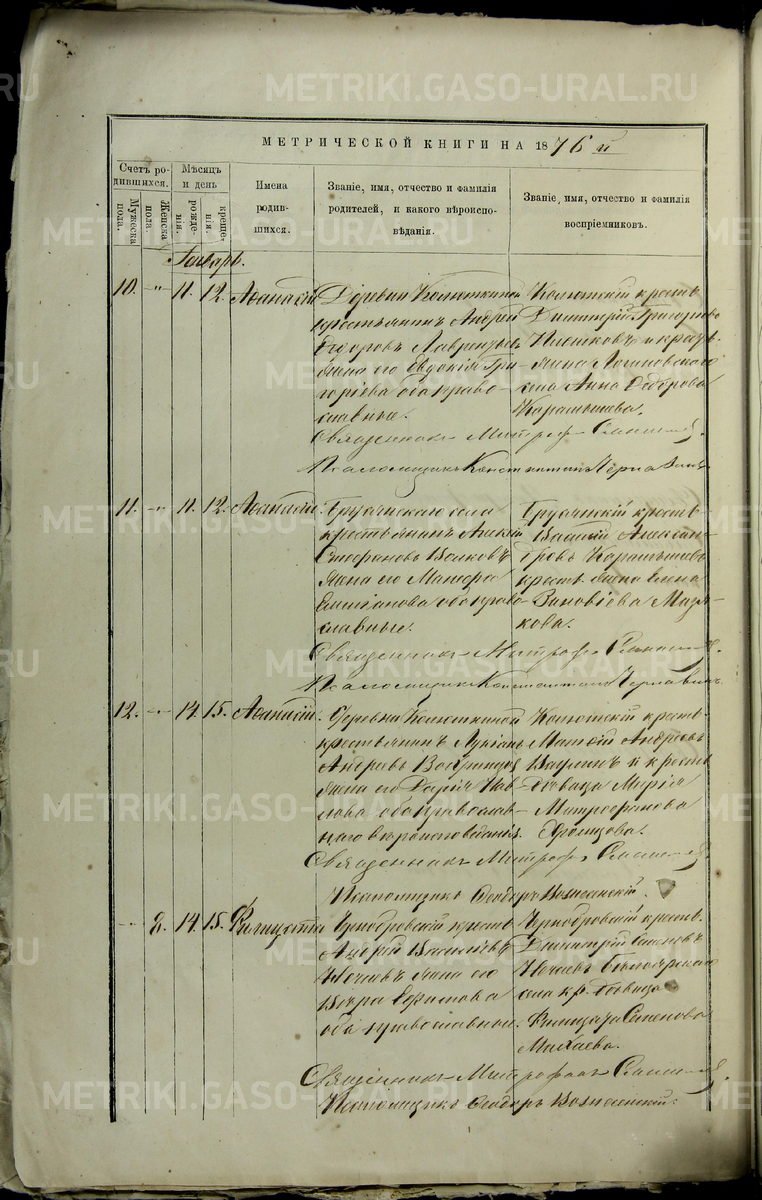 МЕТРИЧЕСКОЙ КНИГИ НА 1876 й
Счетъ родившихся.
Мужеска пола.
Женска пола.
Мѣсяцъ и день
рожденія.
крещенія.
Имена родившихся.
Званіе, имя, отчество и фамилія родителей, и какого вѣроисповѣданія.
Званіе, имя, отчество и фамилія воспріемниковъ.
Генварь.
10. -"- 11. 12. Аѳанасій
Деревни Колюткиной
крестьянинъ Андрей
Ѳедоровъ Лаврентьевъ
жена его Евдокія Гри-
горьева оба право-
славные.
Колютскій крест.
Димитрій Григорьевъ
Плешковъ и крест.
жена Логиновскаго
села Анна Ѳедорова
Карамышева.
Священникъ Митроф.
Псаломщикъ Константинъ Чернавинъ.
11. -"- 11. 12. Аѳанасій.
Бруснянскаго села
крестьянинъ Алексій
Стефановъ Волковъ
жена его Матрона
оба право-
славные.
Бруснянскій крест.
Василій Алексан-
дровъ Карамышевъ
крест. жена Елена
Зиновіева Мазя-
кова.
Священникъ Митроф.
Псаломщикъ Константинъ Чернавинъ.
12. -"- 14. 15. Аѳанасій.
Деревни Колюткиной
крестьянинъ Лукіанъ
Андреевъ
жена его Дарія Пав-
лова оба православ-
наго вѣроисповеданія.
Колютскій крест.
Матѳій Андреевъ
и крест.
дѣвица Марія
Митрофанова
Священникъ Митроф.
Псаломщикъ Ѳеодоръ Вознесенскій.
-"- 2. 14. 15. Филицата
Чернобровскій крест.
Андрей Васильевъ
Нечаевъ жена его
Вѣра Ефимова
оба православные.
Чернобровскій крест.
Димитрій Семеновъ
Нечаевъ Бѣлоярскаго
села кр. дѣвица
Филицата Семенова
Михаева.
Священникъ Митрофанъ
Псаломщикъ Ѳеодоръ Вознесенскій.
METRIKI.GASO-URAL.RU